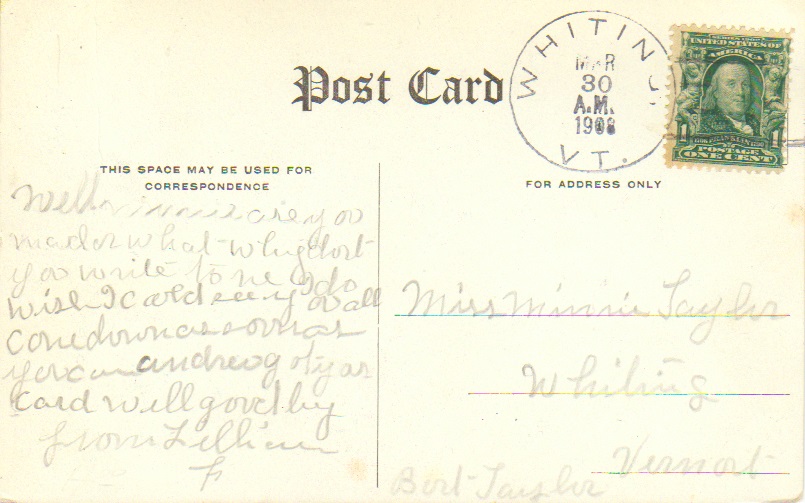 Post Card
WHITING
MAR
30
A.M.
1908
VT.
SERIES 1902
UNITED STATES OF
AMERICA
1 FRANKLIN 1
POSTAGE
ONE CENT
THIS SPACE MAY BE USED FOR
CORRESPONDENCE
FOR ADDRESS ONLY
Well minnie are you
mad or what why dont
you write to me I do
wish I cold see you all
come down as soon as
you can andrew got your
card well good by
from Lillian
F
Miss Minnie Taylor
Whiting
Vermont
Bert Taylor